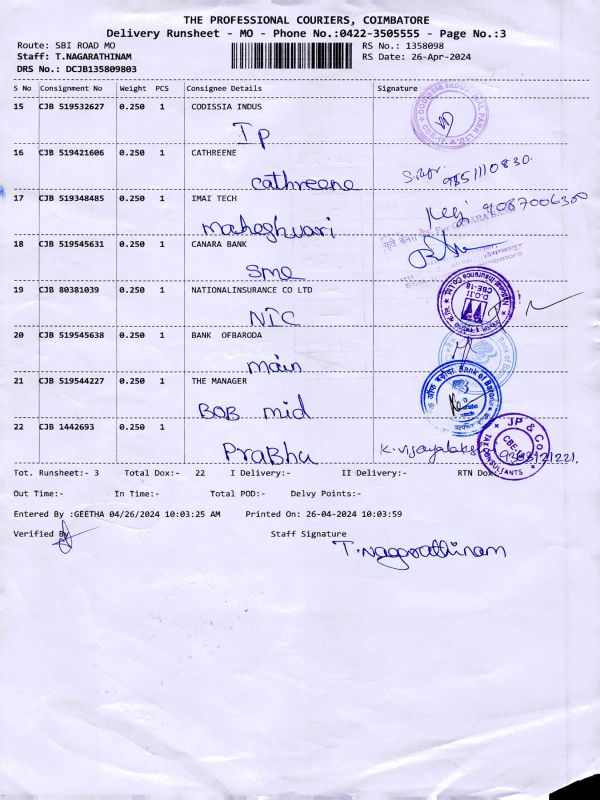 THE PROFESSIONAL COURIERS, COIMBATORE
Delivery Runsheet - MO - Phone No.:0422-3505555 - Page No.:3
Route: SBI ROAD MO RS No.: 1358098
Staff: T.NAGARATHINAM RS Date: 26-Apr-2024
DRS No.: DCJB135809803
S No Consignment No Weight PCS Consignee Details Signature
15 CJB 519532627 0.250 1 CODISSIA INDUS
IP
16 CJB 519421606 0.250 1 CATHREENE
Cathreene 9851110830.
17 CJB 519348485 0.250 1 IMAI TECH
Maheghwari 9087006300
18 CJB 519545631 0.250 1 CANARA BANK
Sme
19 CJB 80381039 0.250 1 NATIONALINSURANCE CO LTD
NIC
20 CJB 519545638 0.250 1 BANK OFBARODA
main
Bank of Baroda
21 CJB 519544227 0.250 1 THE MANAGER
BOB mid
Bank of Baroda
22 CJB 1442693 0.250 1
PraBhu
JP & Co
TAX CONSULTANTS
CBE-
Tot. Runsheet:- 3 Total Dox:- 22 I Delivery:- II Delivery:- RTN Dox
Out Time:- In Time:- Total POD:- Delvy Points:-
Entered By :GEETHA 04/26/2024 10:03:25 AM Printed On: 26-04-2024 10:03:59
Verified By Staff Signature
T.Nagarathinam